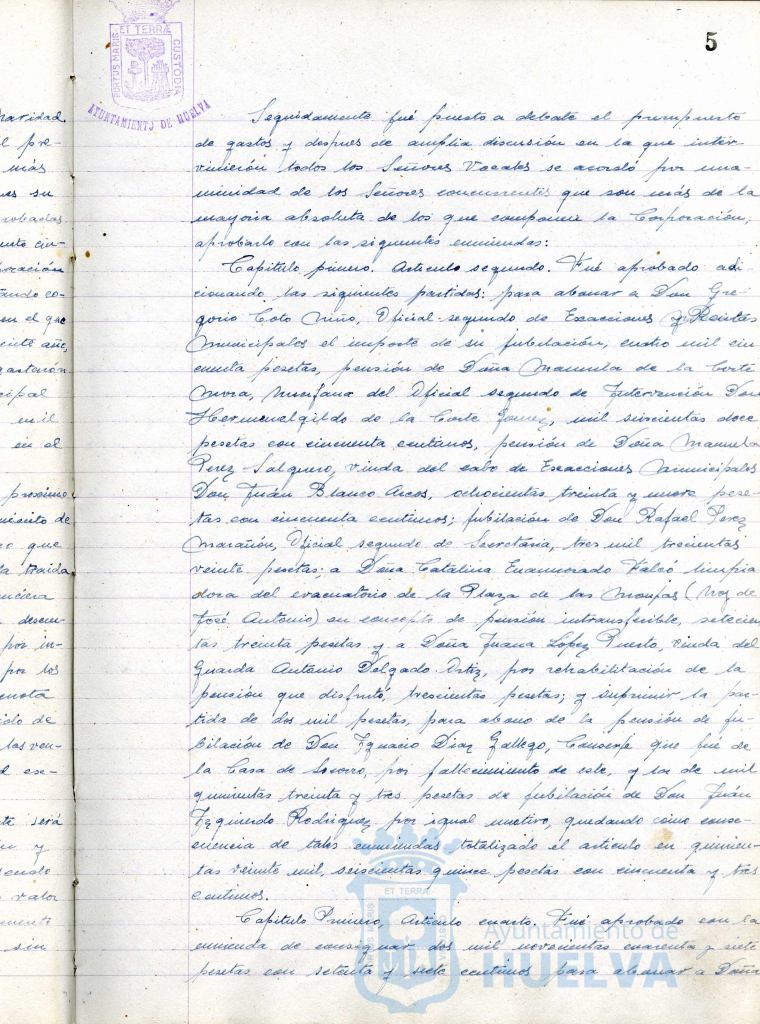 5
PORTUS MARIS ET TERRÆ CUSTODIA
AYUNTAMIENTO DE HUELVA
Seguidamente fué puesto a debate el presupuesto
de gastos y despues de amplia discusión en la que inter-
vinieron todos los Señores Vocales se acordó por una-
nimidad de los Señores concurrentes que son más de la
mayoria absoluta de los que componen la Corporación,
aprobarlo con las siguientes enmiendas:
Capitulo primero. Articulo segundo. Fué aprobado adi-
cionando las siguientes partidas: para abonar a Don Gre-
gorio Coto Niño, Oficial segundo de Exacciones y Rentas
Municipales el importe de su jubilación, cuatro mil cin
cuenta pesetas, pensión de Doña Manuela de la Corte
Mora, huerfana del Oficial segundo de Intervención Don
Hermenegildo de la Corte Gomez, mil seiscientas doce
pesetas con cincuenta centimos, pensión de Doña Manuela
Perez Salguero, viuda del cabo de Exacciones Municipales
Don Juán Blanco Arcos, ochocientas treinta y nueve pese-
tas con cincuenta centimos; jubilación de Don Rafael Perez
Marañón, Oficial segundo de Secretaria, tres mil trecientas
veinte pesetas; a Doña Catalina Enamorado Falcó limpia
dora del evacuatorio de la Plaza de las Monjas (hoy de
José Antonio) en concepto de pensión intransferible, setecien
tas treinta pesetas y a Doña Juana López Puerto, viuda del
Guarda Antonio Delgado Ortiz, por rehabilitación de la
pensión que disfrutó, trescientas pesetas; y suprimir la par-
tida de dos mil pesetas, para abono de la pensión de ju-
bilación de Don Ignacio Diaz Gallego, Conserje que fué de
la Casa de Socorro, por fallecimiento de este, y la de mil
quinientas treinta y tres pesetas de jubilación de Don Juán
Izquierdo Rodriguez por igual motivo, quedando como conse-
cuencia de tales enmiendas totalizado el articulo en quinien-
tas veinte mil, seiscientas quince pesetas con cincuenta y tres
centimos.
Capitulo Primero, Articulo cuarto. Fué aprobado con la
enmienda de consignar dos mil novecientas cuarenta y siete
pesetas con setenta y siete centimos para abonar a Doña
ET TERRA
Ayuntamiento de
HUELVA